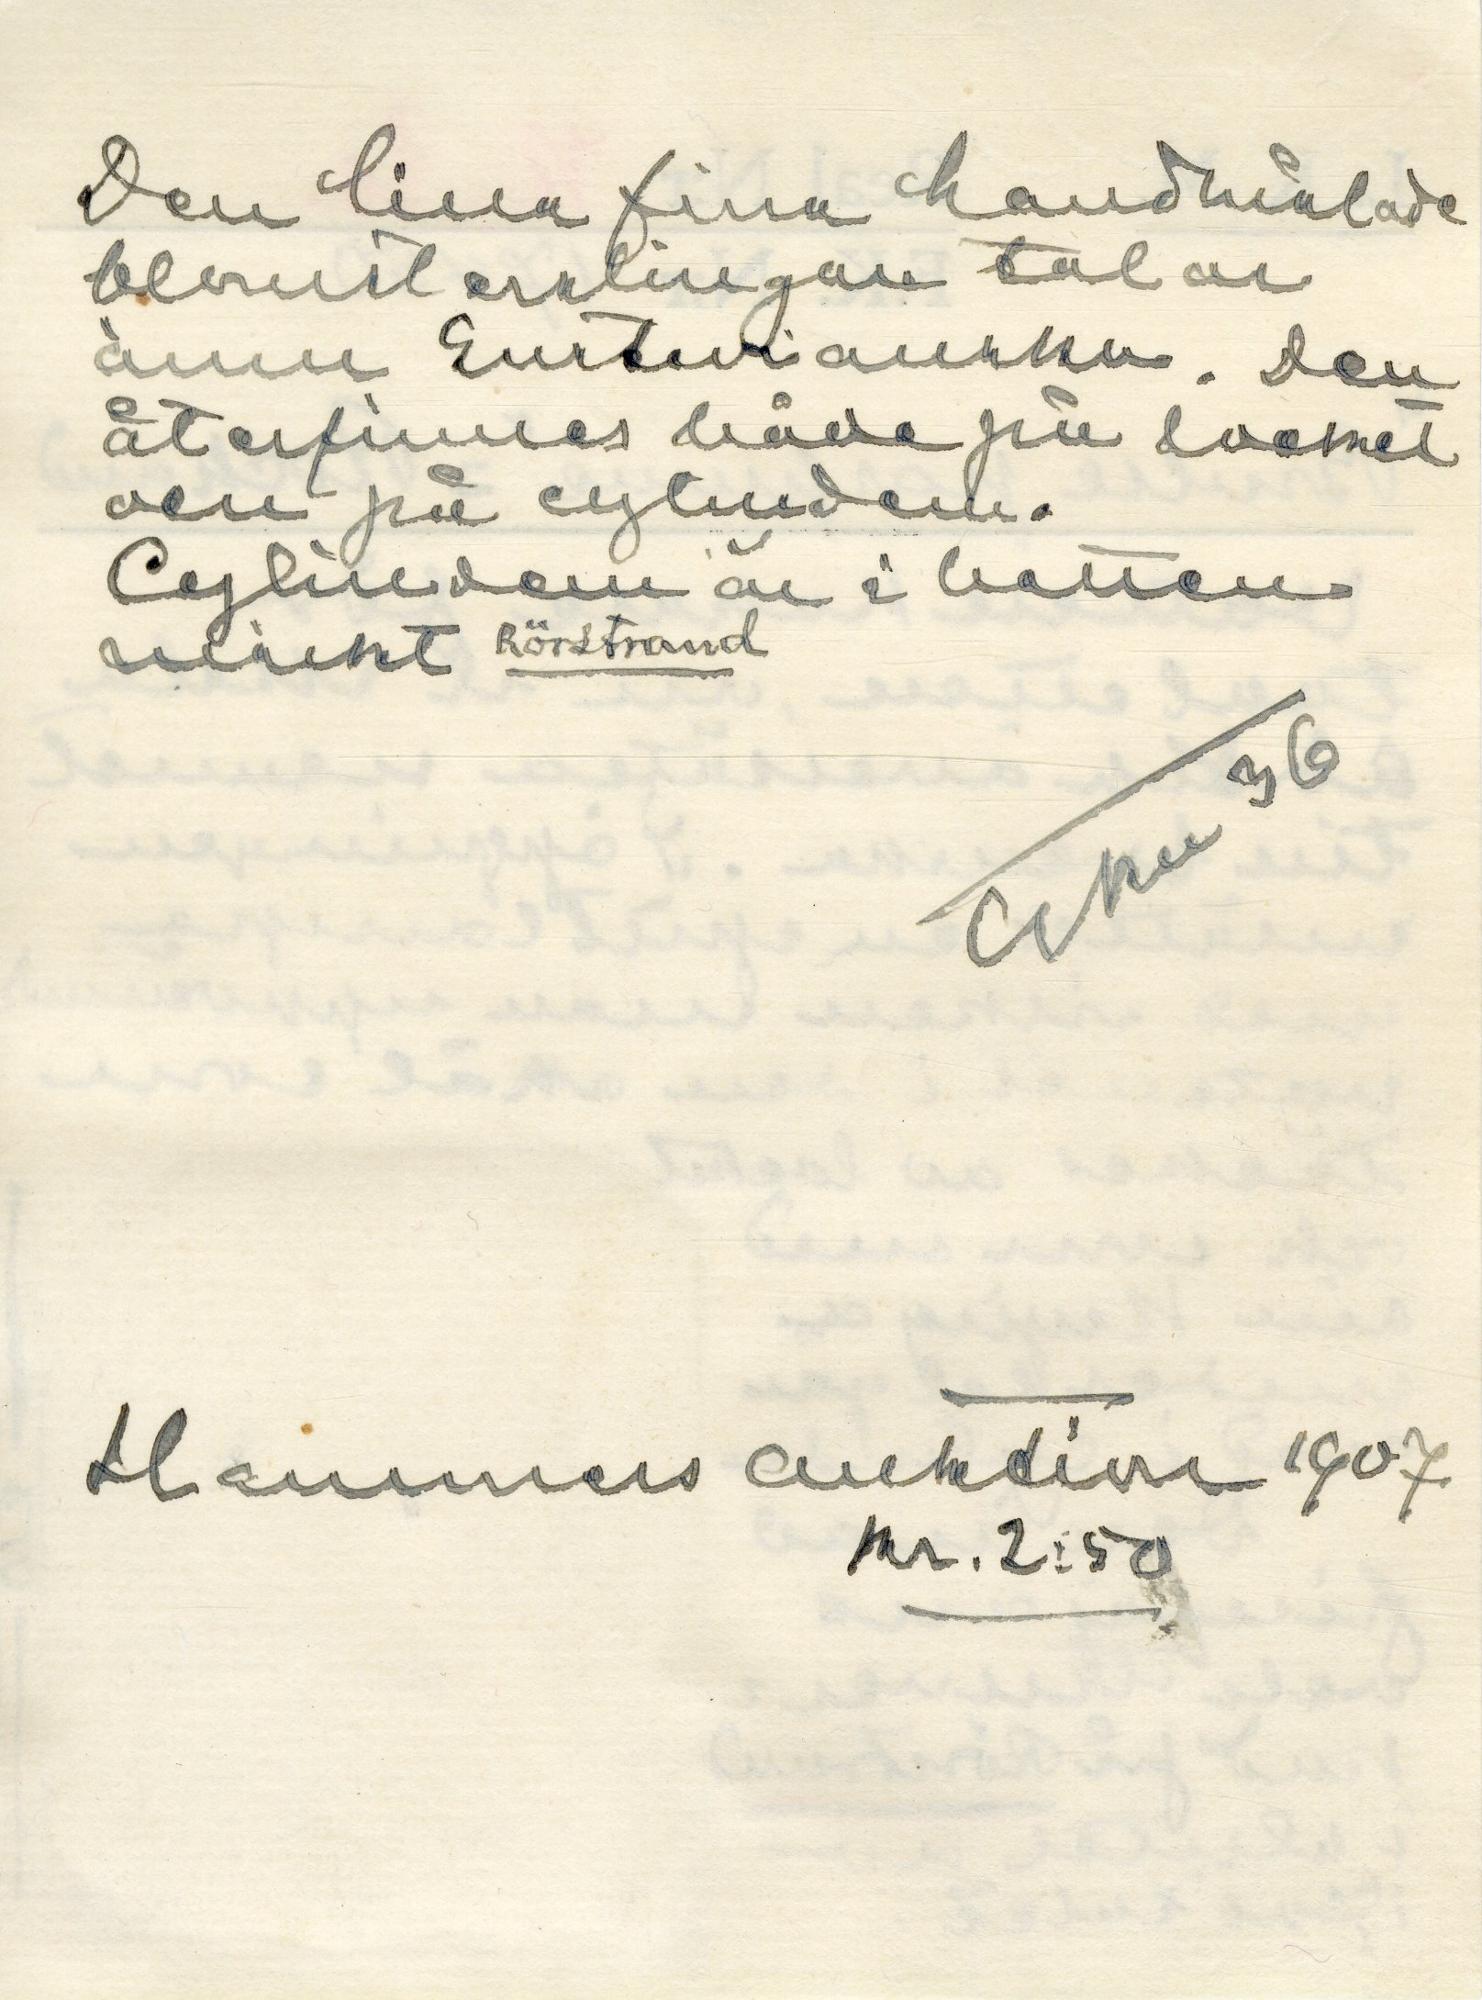 Den lilla fina handmålade
blomsterslingan talar
ännu Gustavianska. Den
återfinnes både på locket
och på cylindern.
Cylindern är i botten
märkt Rörstrand
36
Hammers auktion 1907
kr. 2:50